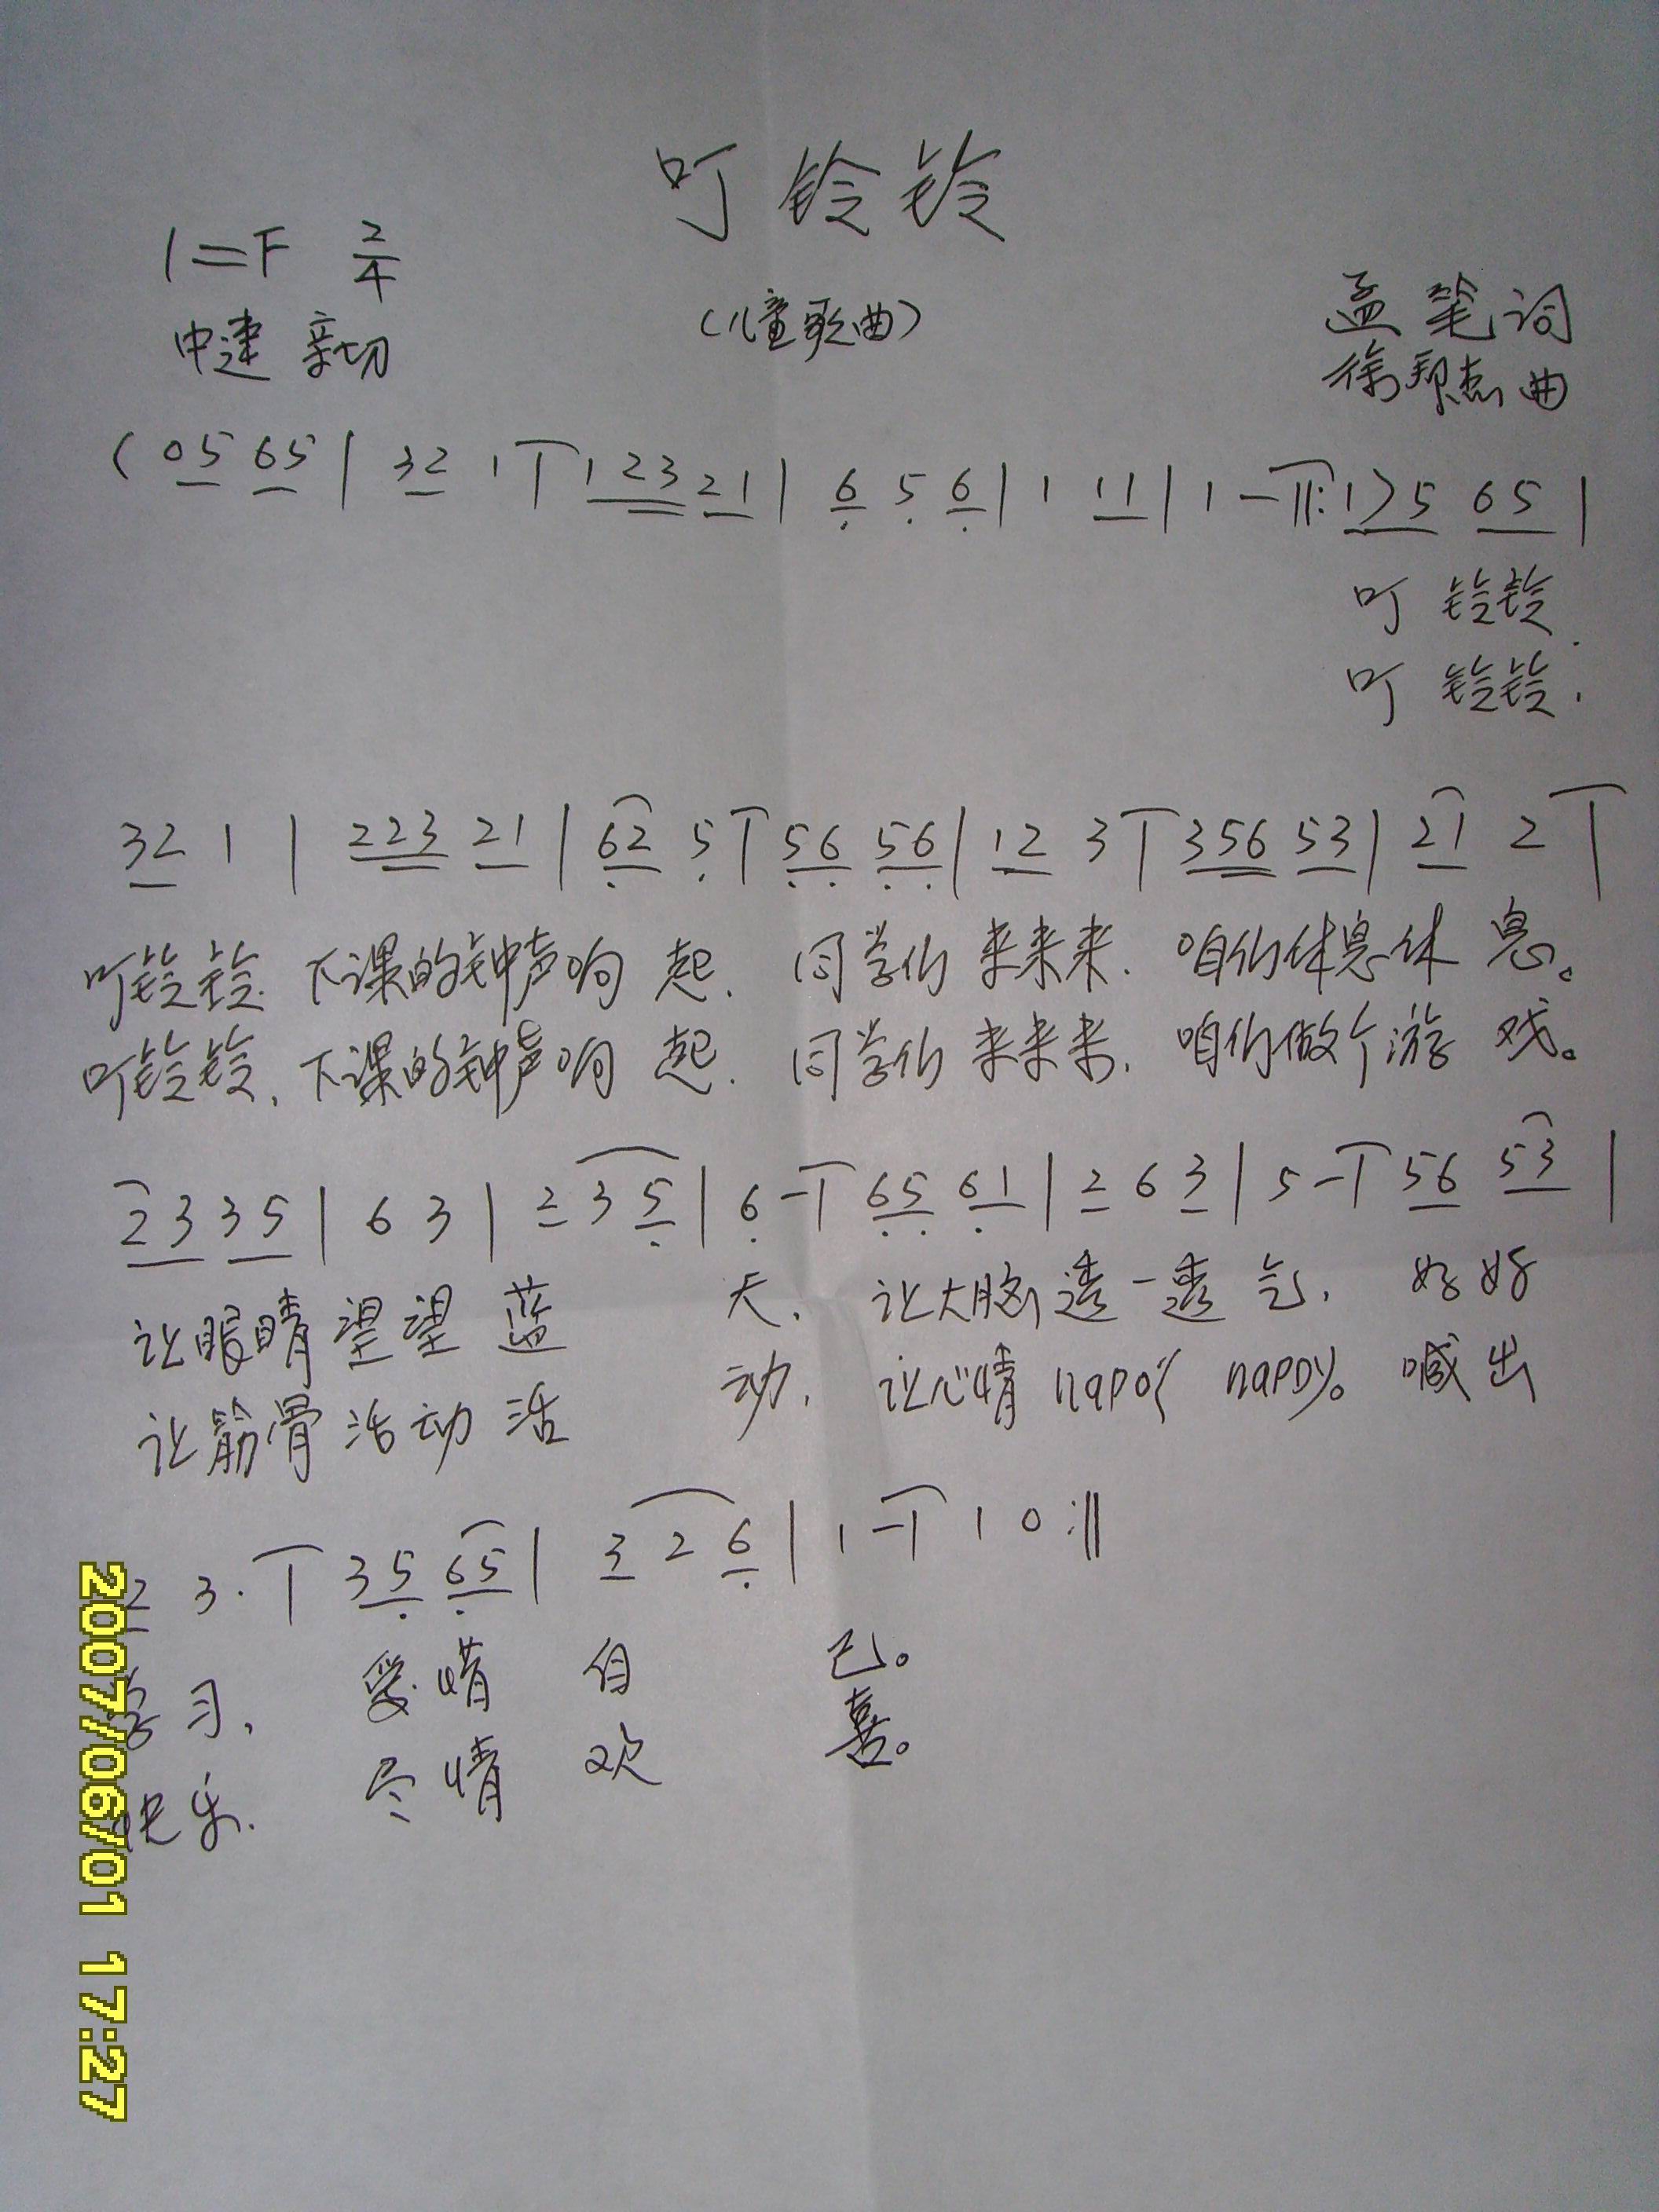 叮铃铃
1=F 2/4
(儿童歌曲)
中速 亲切
孟笔词
徐邦杰曲
(05 65 | 32 1 | 1 23 21 | 6 5 6 | 1 11 | 1 - ‖: 1)5 65 |
叮 铃铃.
叮 铃铃.
32 1 | 223 21 | 62 5 | 56 56 | 12 3 | 356 53 | 21 2 |
叮铃铃. 下课的钟声响 起. 同学们 来来来. 咱们休息休 息。
叮铃铃, 下课的钟声响 起. 同学们 来来来, 咱们做个游 戏。
23 35 | 6 3 | 2 3 5 | 6 - | 65 61 | 2 6 3 | 5 - | 56 53 |
让眼睛望望 蓝 天, 让大脑透一透 气, 好好
让筋骨活动活 动, 让心情 喊出
2 3· | 35 65 | 3 2 6 | 1 - | 1 0 :‖
学习, 爱惜 自 己。
快乐. 尽情 欢 喜。
2007/06/01 17:27